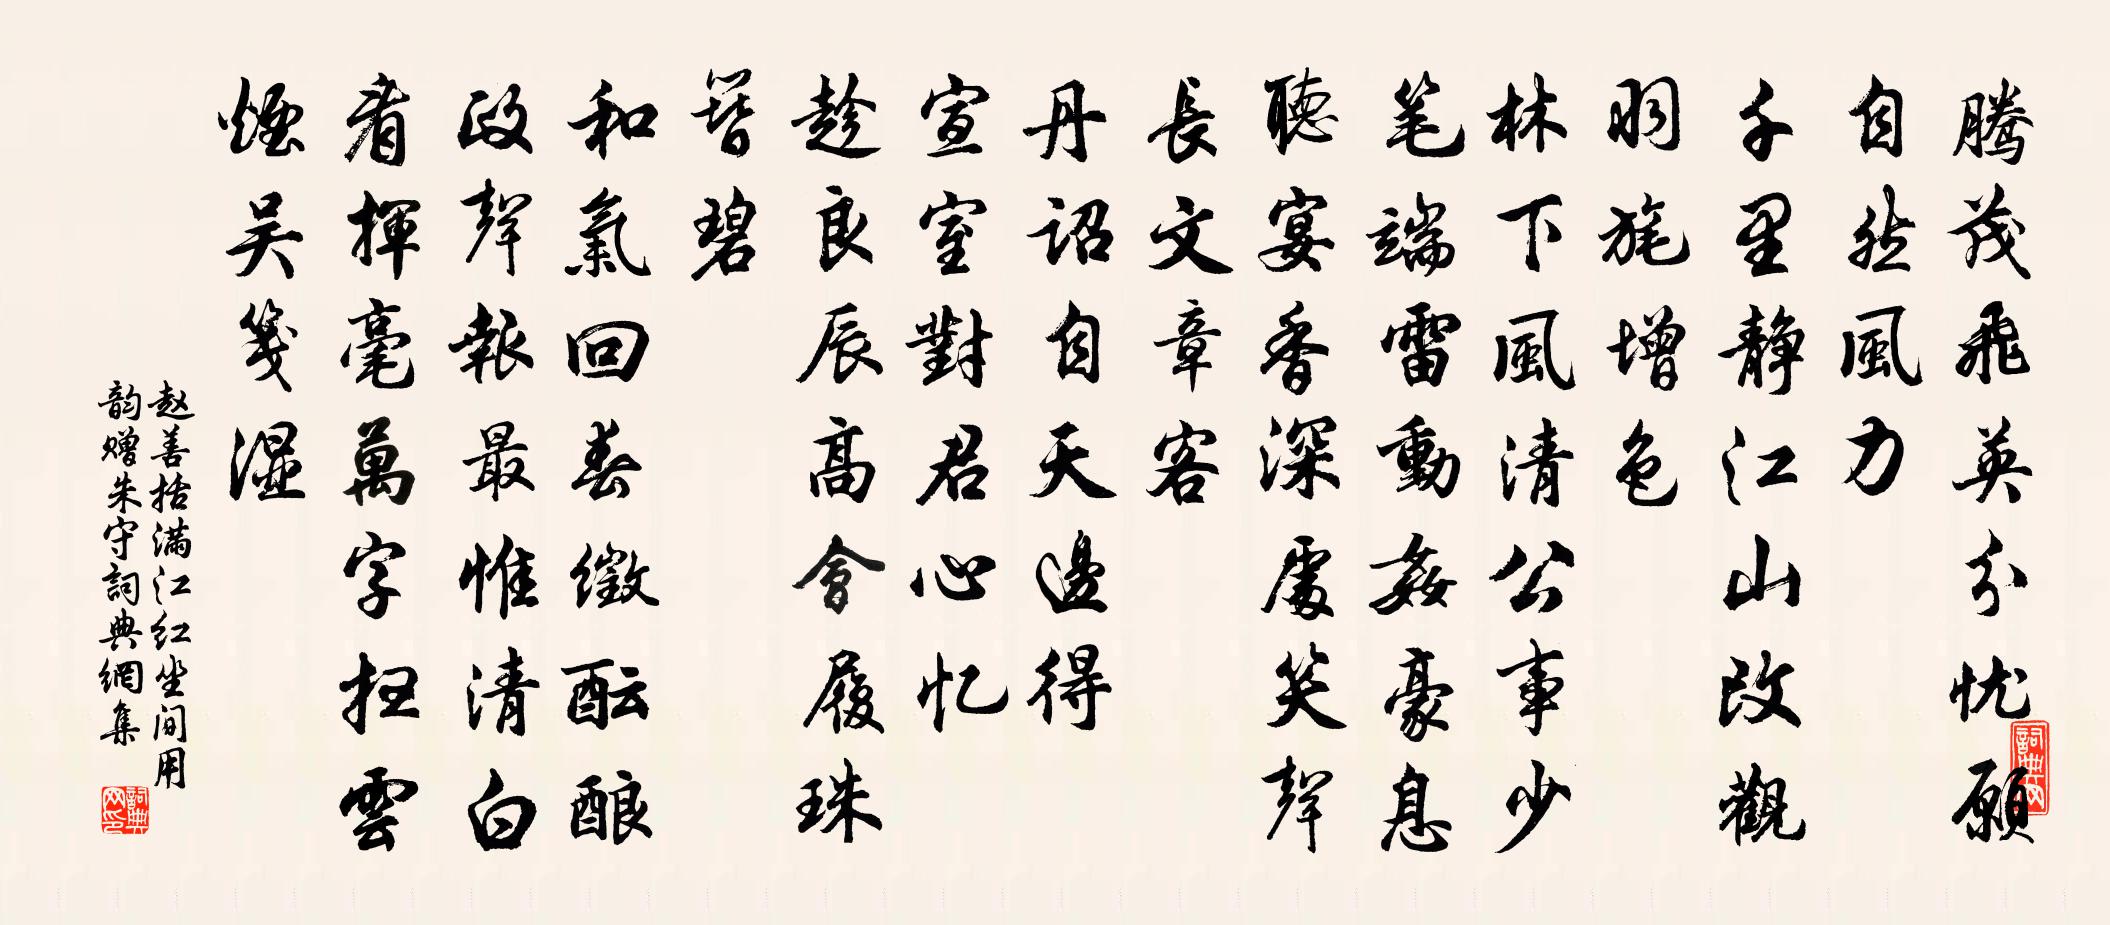 腾茂飛英分忧願
自然風力
千里静江山改觀
羽旄增色
林下風清公事少
笔端雷動姦豪息
聽宴香深處笑聲
長文章客
丹詔自天邊得
宣室對君心忆
趁良辰高會履珠
簪碧
和氣回春徵酝酿
政聲報最惟清白
看揮毫萬字扫雲
煙吴箋濕
赵善括满江红坐间用
韵赠朱守詞典網集
詞典网
詞典网印